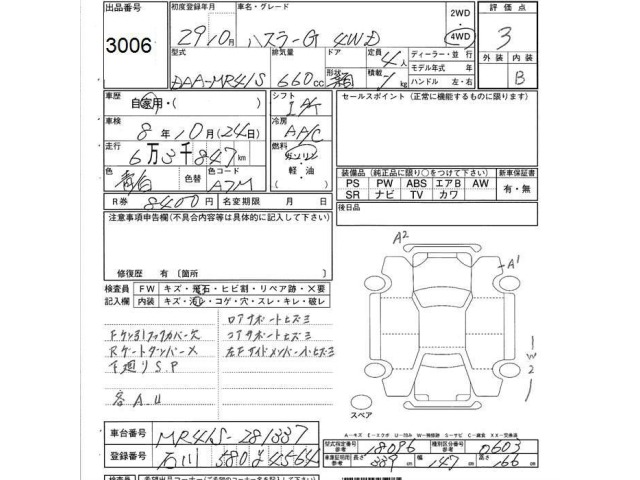 出品番号
3006
初度登録年月 車名・グレード 2WD 評価点
29年10月 ハスラーG 4WD 4WD 3
型式 排気量 ドア 定員 ディーラー・並行 外装 内装
DAA-MR41S 660cc 形状 積載 4人 モデル年式 年 B
kg ハンドル 左・右
車歴 シフト セールスポイント(正常に機能するものに限ります)
自家用・( ) IAT
車検 冷房
8年10月(24日) AAC
走行 燃料
6万3千847km ガソリン
軽・油
色 色替 色コード 装備品(純正品に限り○をつけて下さい) 新車保証書
青白 PS PW ABS エアB AW 有・無
SR ナビ TV カワ
R券 8400円 名変期限 月 日 後日品
注意事項申告欄(不具合内容等は具体的に記入して下さい)
A2
A1
修復歴 有 〔箇所 〕
検査員 FW キズ・飛石・ヒビ割・リペア跡・X要
記入欄 内装 キズ・汚レ・コゲ・穴・スレ・キレ・破レ
ロアサポートヒズミ
Fケン引フックカバー欠 コアサポートヒズミ
W2
下廻りS.P
各A.U
スペア
A-キズ E-エクボ
車台番号 MR41S-281337
型式指定番号 18086 類別区分番号 0603
登録番号 石川 580 4564
長さ 339cm 幅 147cm 高さ 166cm